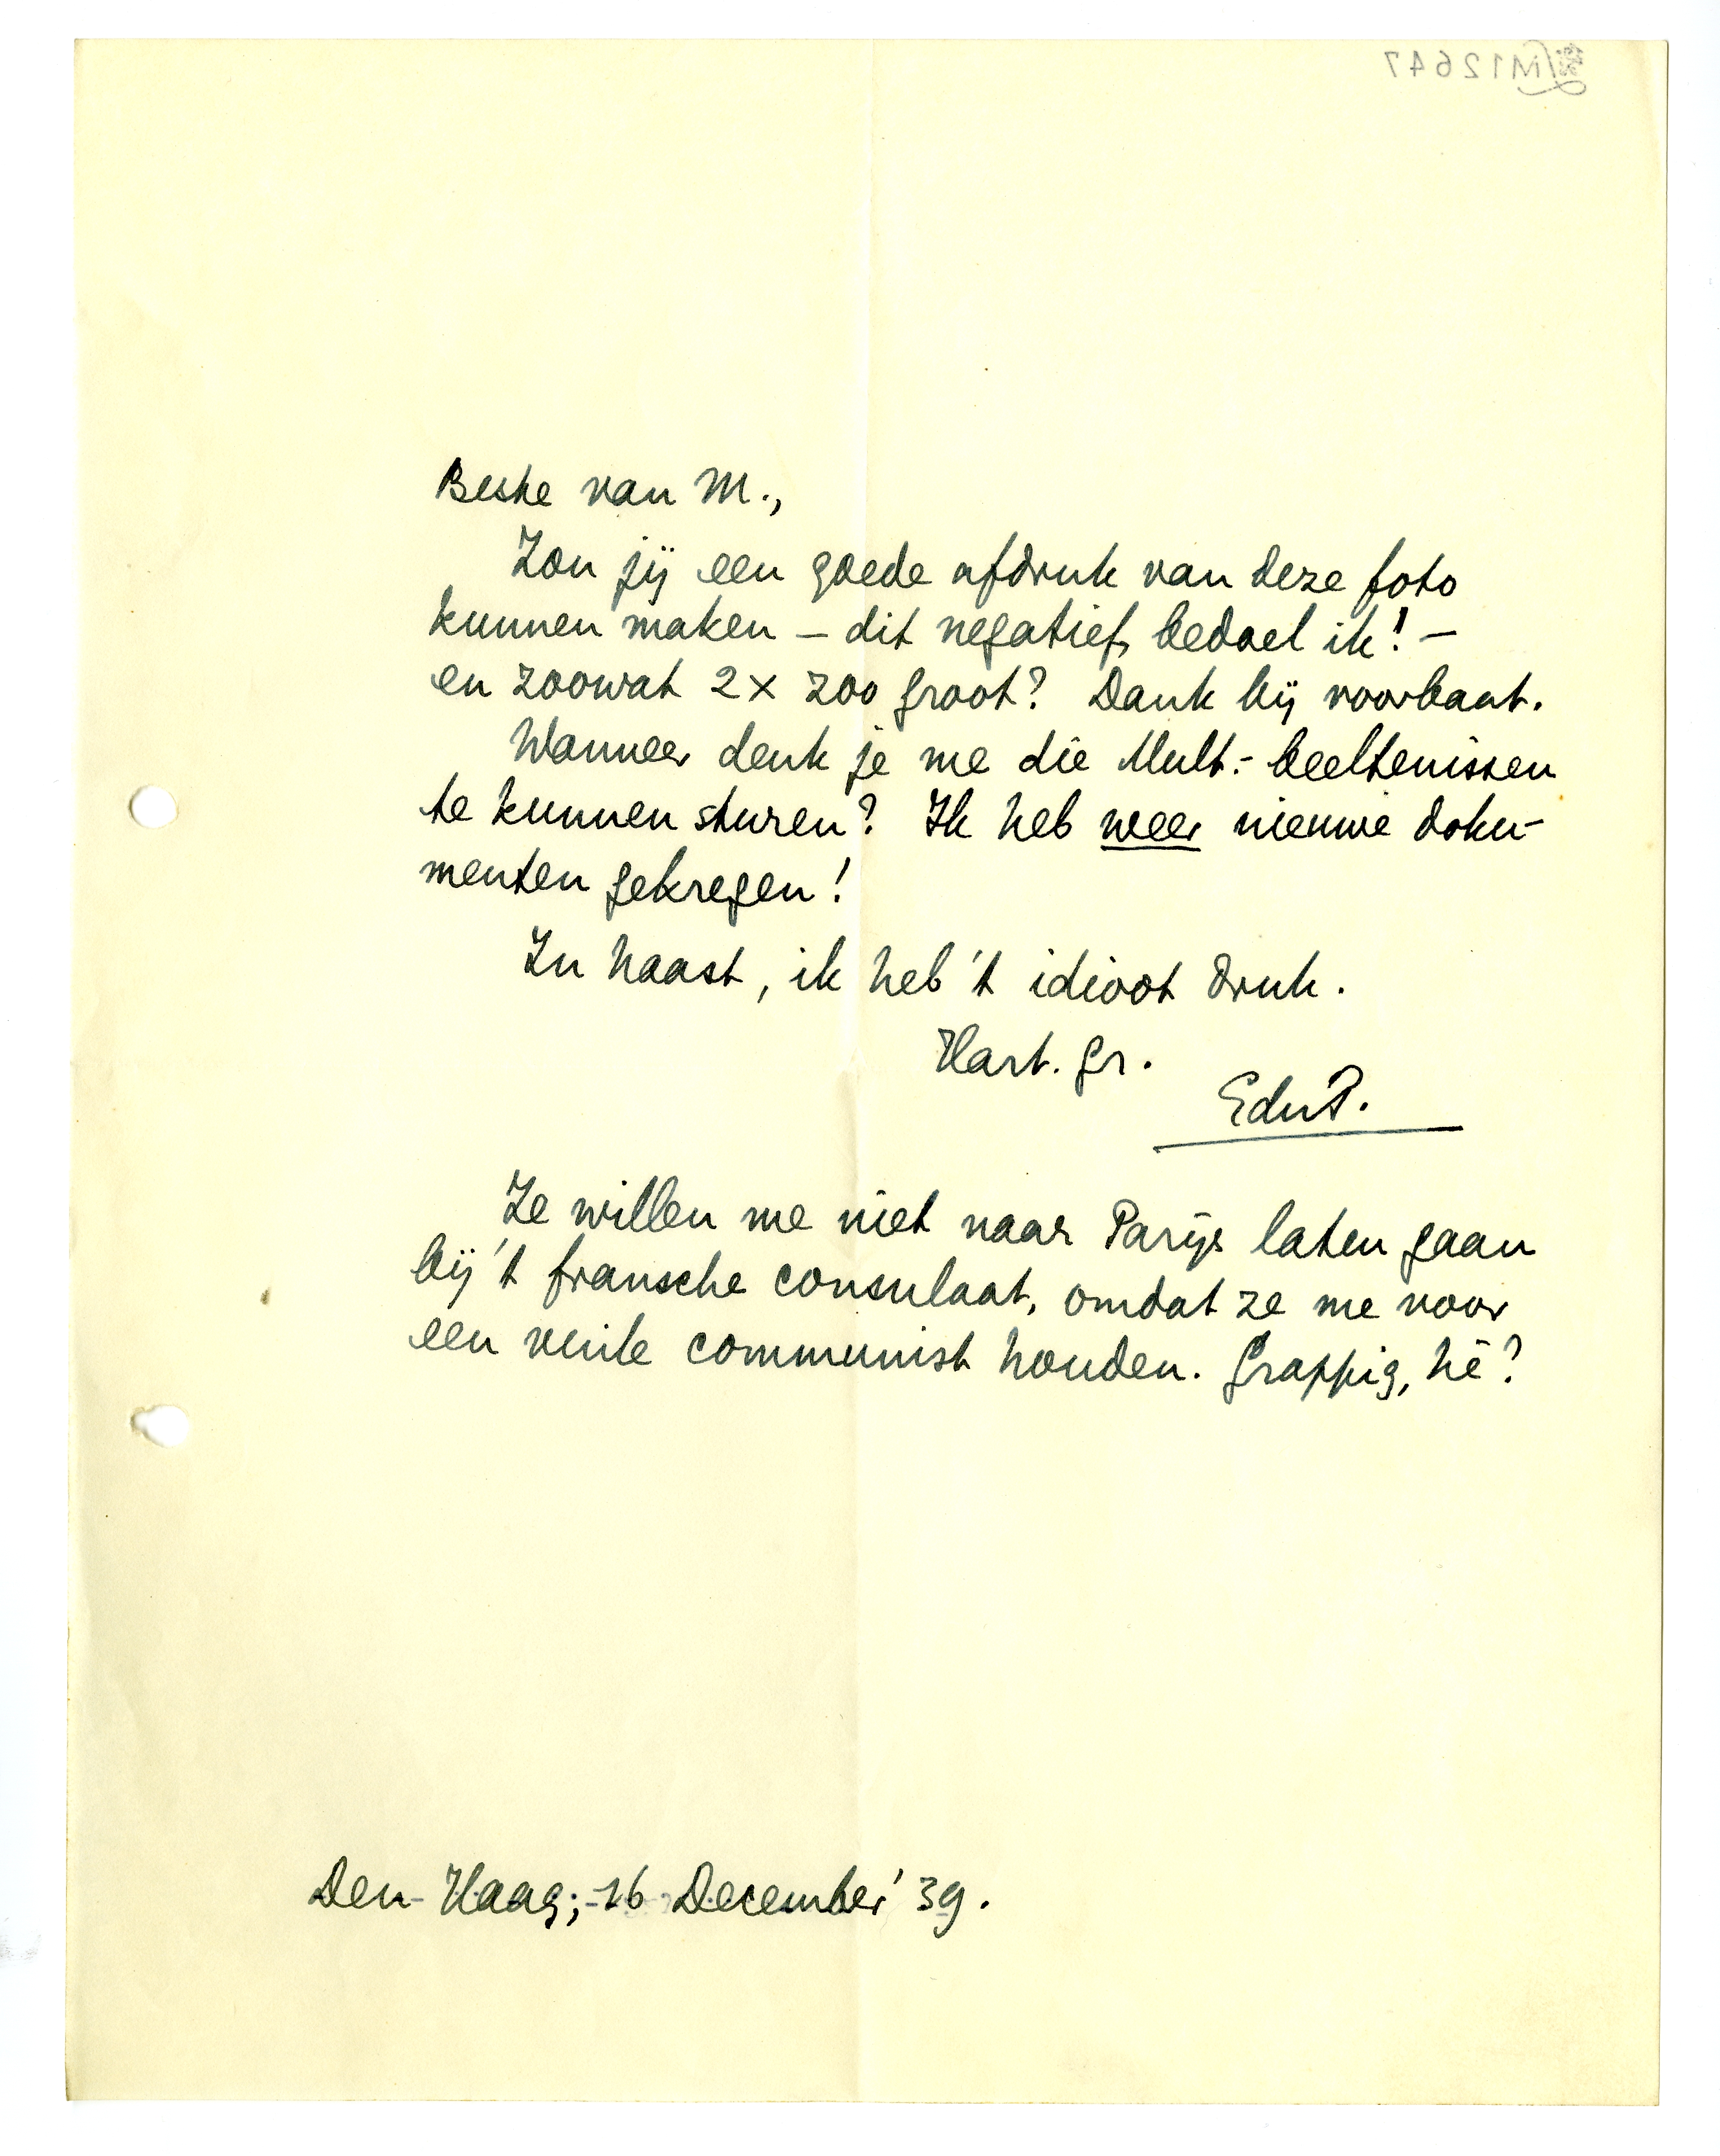 M12647
Beste van M.,
Zou jij een goede afdruk van deze foto
kunnen maken – dit negatief, bedoel ik! –
en zoowat 2x zoo groot? Dank bij voorbaat.
Wanneer denk je me die Mult.-beeltenissen
te kunnen sturen? Ik heb weer nieuwe doku-
menten gekregen!
In haast, ik heb 't idioot druk.
Hart. gr.
EduP.
Ze willen me niet naar Parijs laten gaan
bij 't fransche consulaat, omdat ze me voor
een vuile communist houden. Grappig, hè?
Den Haag, 16 December '39.